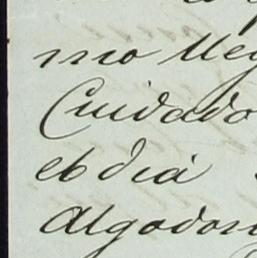 mo lleg
Cuidado
el dia
Algodon